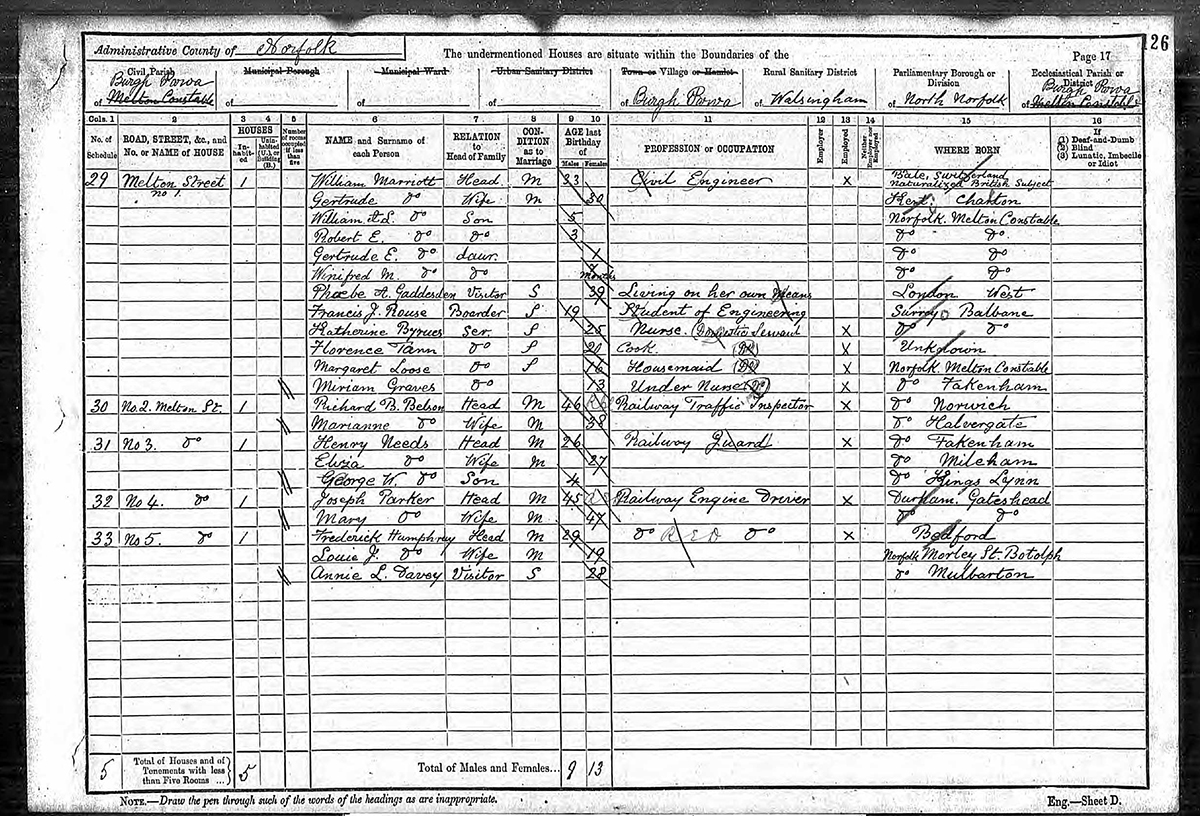 126
Administrative County of Norfolk
The undermentioned Houses are situate within the Boundaries of the
Page 17
Civil Parish Burgh Parva of Melton Constable
Municipal Borough of
Municipal Ward of
Urban Sanitary District of
Town or Village or Hamlet of Burgh Parva
Rural Sanitary District of Walsingham
Parliamentary Borough or Division of North Norfolk
Ecclesiastical Parish or District Burgh Parva of Melton Constable
Cols. 1 2 3 4 5 6 7 8 9 10 11 12 13 14 15 16
No. of Schedule
ROAD, STREET, &c., and No. or NAME of HOUSE
HOUSES
In-habit-ed
Unin-habited (U.), or Building (B.)
Number of rooms occupied if less than five
NAME and Surname of each Person
RELATION to Head of Family
CON-DITION as to Marriage
AGE last Birthday of
Males Females
PROFESSION or OCCUPATION
Employer
Employed
Neither Employer nor Employed
WHERE BORN
If (1) Deaf-and-Dumb (2) Blind (3) Lunatic, Imbecile or Idiot
29 Melton Street no 1. 1 William Marriott Head M 33 Civil Engineer X Bale, Switzerland naturalized British Subject
Gertrude Do Wife M 30 Kent. Charlton
William A.L. Do Son 5 Norfolk. Melton Constable
Robert E. Do Do 3 Do Do
Gertrude E. Do daur. 1 Do Do
Winifred M. Do Do months Do Do
Phoebe A. Gaddesden Visitor S 39 Living on her own Means London West
Francis J. Rouse Boarder S 19 Student of Engineering Surrey Balbane
Katherine Byrues Ser. S 25 Nurse. (Domestic Servant X Do Do
Florence Tann Do S 20 Cook. (Do) X Unknown
Margaret Loose Do S 16 Housemaid (Do) X Norfolk. Melton Constable
Miriam Graves Do 13 Under Nurse (Do) X Do Fakenham
30 No. 2. Melton St. 1 Richard B. Belson Head M 46 Railway Traffic Inspector X Do Norwich
Marianne Do Wife M 38 Do Halvergate
31 No 3. Do 1 Henry Needs Head M 26 Railway Guard X Do Fakenham
Eliza Do Wife M 27 Do Mileham
George W. Do Son 4 Do Kings Lynn
32 No 4. Do 1 Joseph Parker Head M 45 Railway Engine Driver X Durham. Gateshead
Mary Do Wife M 47 Do Do
33 No 5. Do 1 Frederick Humphrey Head M 29 Do R E D Do X Bedford
Louie J. Do Wife M 19 Norfolk Morley St. Botolph
Annie L. Davey Visitor S 28 Do Mulbarton
5 Total of Houses and of Tenements with less than Five Rooms ... 5 Total of Males and Females... 9 13
NOTE.—Draw the pen through such of the words of the headings as are inappropriate.
Eng.—Sheet D.